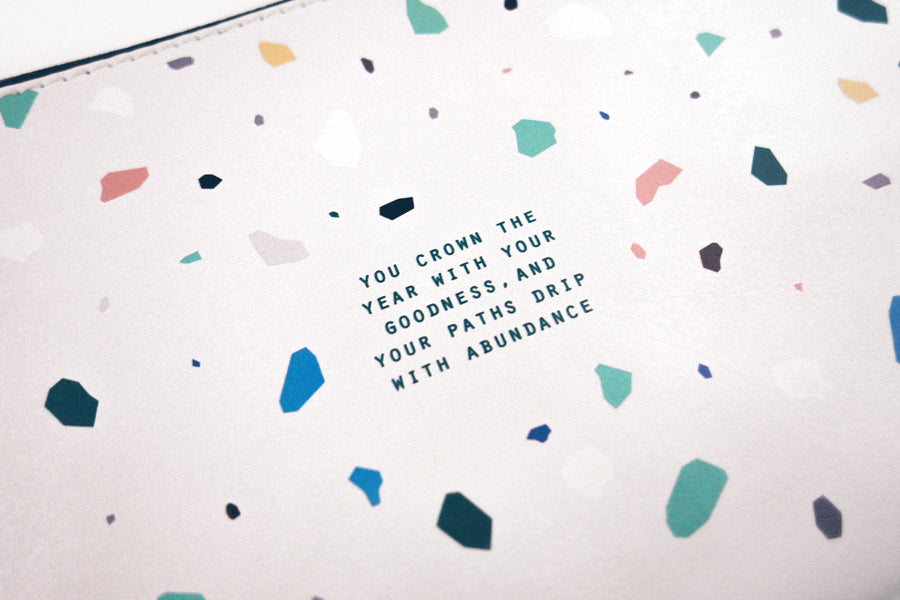 YOU CROWN THE
YEAR WITH YOUR
GOODNESS, AND
YOUR PATHS DRIP
WITH ABUNDANCE